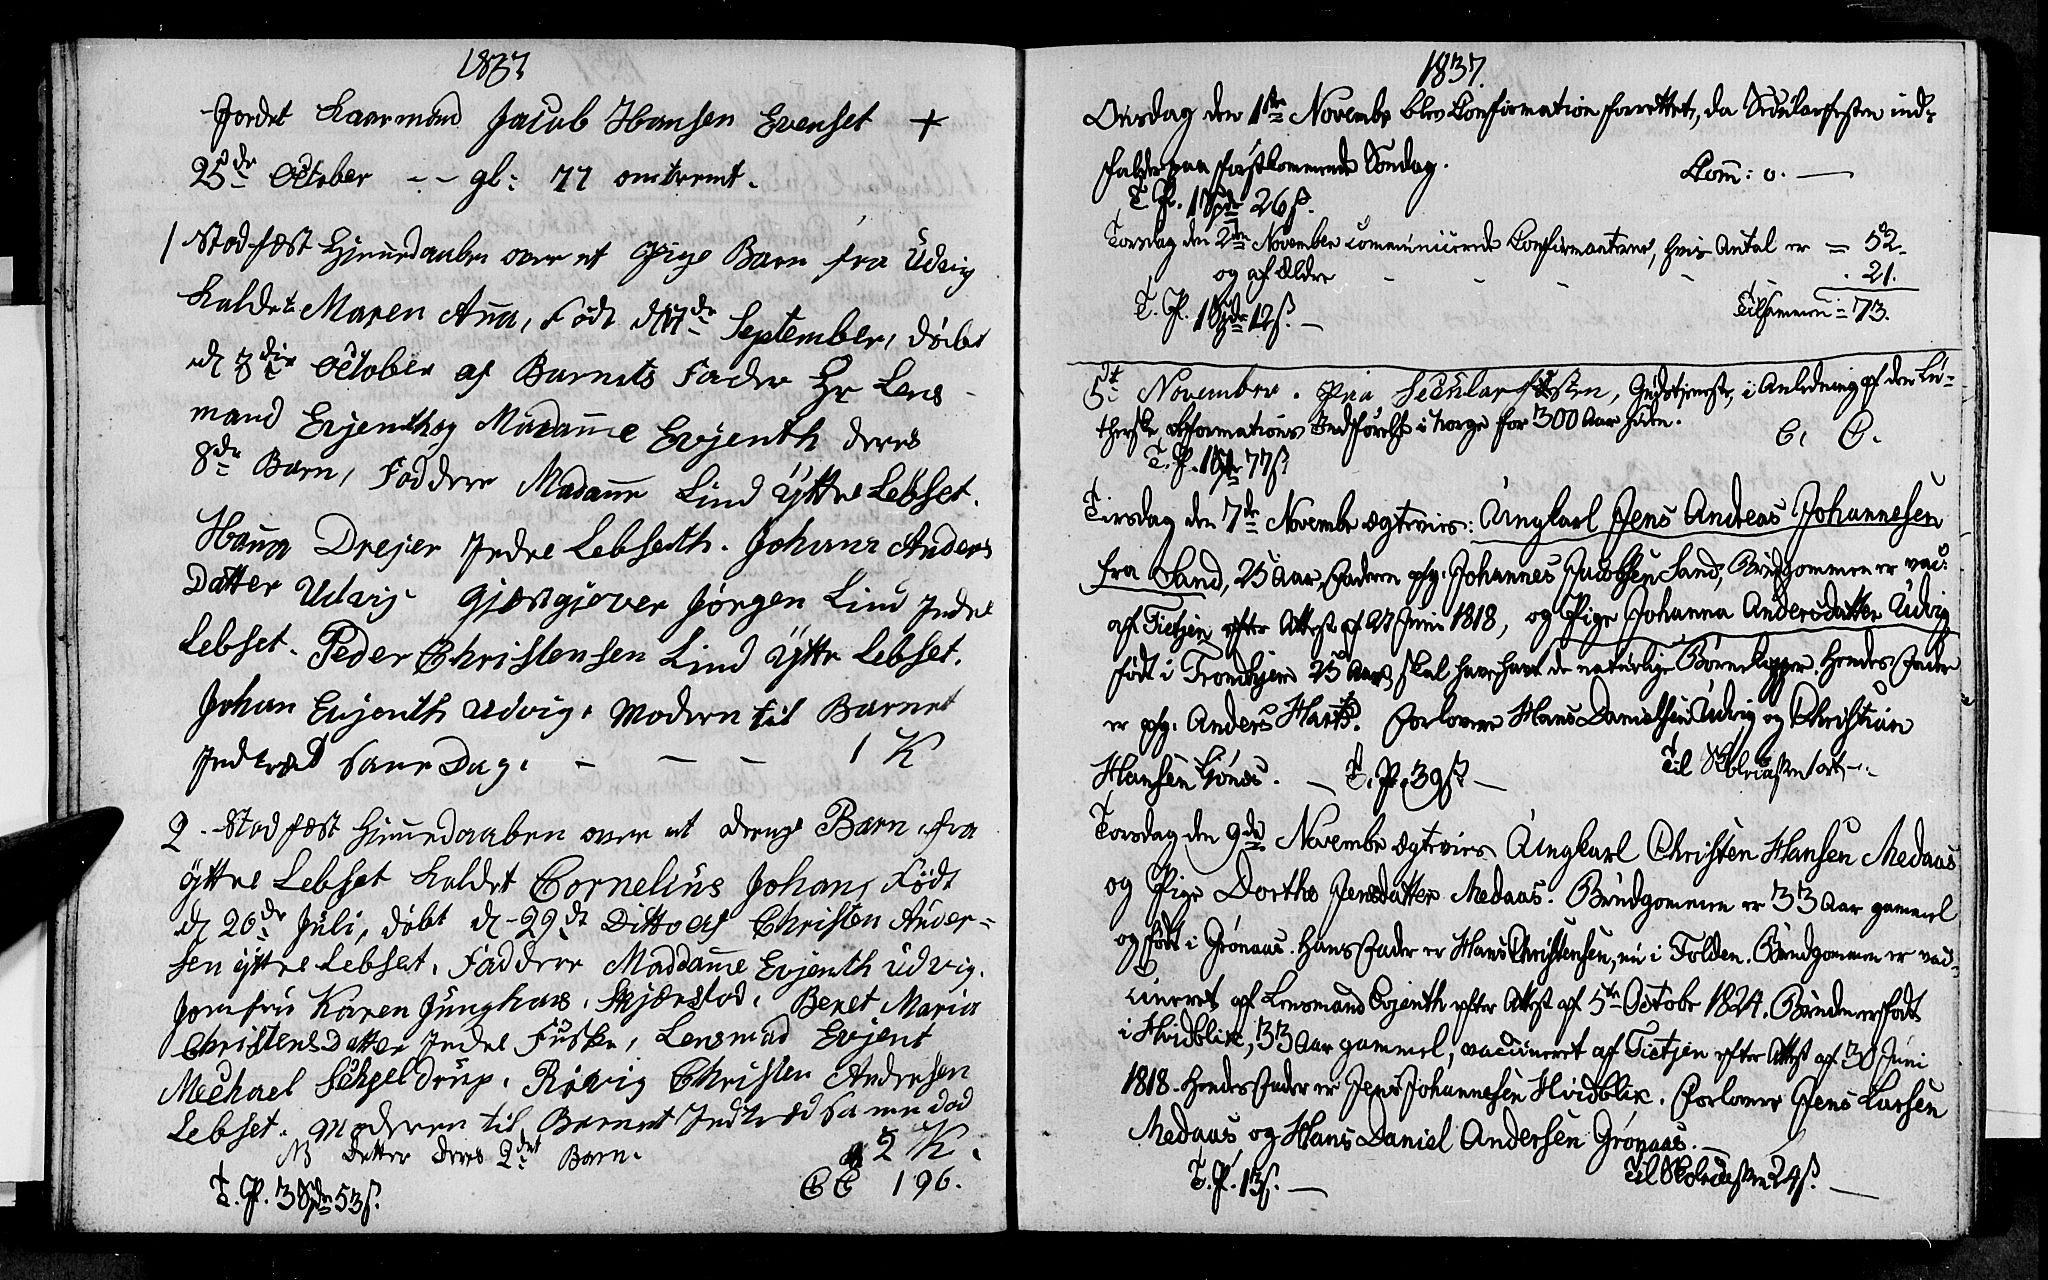 1837
Jordet Kaarmand Jacob Hansen Evenset +
25de October - - gl: 77 omtremt.
1 Stadfæst Hjemedaaben over et Pige Barn fra Udvig
Kaldet Maren Ana, Født d 17de September, døbt
d 8die October af Barnets Fader Hr Lens
mand Evjenth og Madame Evjenth deres
8de Barn, Faddere Madame Lind Yttre Lebset.
Hana Drejer Indre Lebseth. Johana Anders
Datter Udvig Gjestgiever Jørgen Lind Indre
Lebset. Peder Christensen Lind Yttre Lebset.
Johan Evjenth Udvig. Modern til Barnet
Indtræd Same Dag. - - - 1 K
2. Stadfæst Hjemedaaben over et drenge Barn, fra
Yttre Lebset Kaldet Cornelius Johan, Født
d 20de Juli, døbt d 29de Ditto af Christen Ander-
sen Yttre Lebset, Faddere Maddame Evjenth Udvig.
Jomfru Karen Junghans, Skjærstad, Beret Maria
Christens Datter Indre Fuske, Lensmad Evjent
Mechael Schjeldrup, Røvig Christen Andersen
Lebset. Moderen til Barnet Indtræd Same dad
NB detter deres 2det Barn. 2 K.
T. P. 3 Spd 53ß. CC 196.
1837.
Onsdag den 1ste Novembr blev Confirmation forrettet, da Secularfesten ind-
falder paa førstkommende Søndag. Kom: 0. —
T. P. 1 Spd 26ß.
Torsdag den 2den November communicerede Confirmanterne, hvis Antal er = 52-
og af Ældre - - - - 21.
T. P. 1 Spd 12ß. — Tilsammen = 73.
5te November. Paa Secularfesten, Gudstjeneste, i Anledning af den Lu-
therske Reformations Indførelse i Norge for 300 Aar siden. C. C.
T. P. 1 Spd 77ß
Tirsdag den 7de Novembr ægtevies: Ungkarl Jens Andreas Johannesen
fra Sand, 25 Aar, Faderen Johannes Jacobsen Sand, Brudgommen er vac:
af Tietjen efter Attest af 27 Juni 1818, og Pige Johanna Andersdatter Udvig
født i Trondhjem 25 Aar, skal have havt de naturlige Børnekopper. Hendes Fader
er Anders Harts. Forlovere Hans Danielsen Udvig og Christian
Hansen Lønæs. — T. P. 39ß — Til Skolekassen ort —
Torsdag den 9de Novembr ægtevies Ungkarl Christen Hansen Medaas
og Pige Dorthe Jensdatter Medaas. Brudgommen er 33 Aar gammel
og født i Grønaas. Hans Fader er Hans Christensen, nu i Folden. Brudgommen er vac-
cineret af Lensmand Evjenth efter Attest af 5te Octobr 1824. Bruden er født
i Hvidblik, 33 Aar gammel, vaccineret af Tietjen efter Attest af 30 Juni
1818. Hendes Fader er Jens Johannesen Hvidblik. Forlovere Jens Larsen
Medaas og Hans Daniel Andersen Grønaas. —
T. P. 13ß. — Til Skolekassen 24ß. —